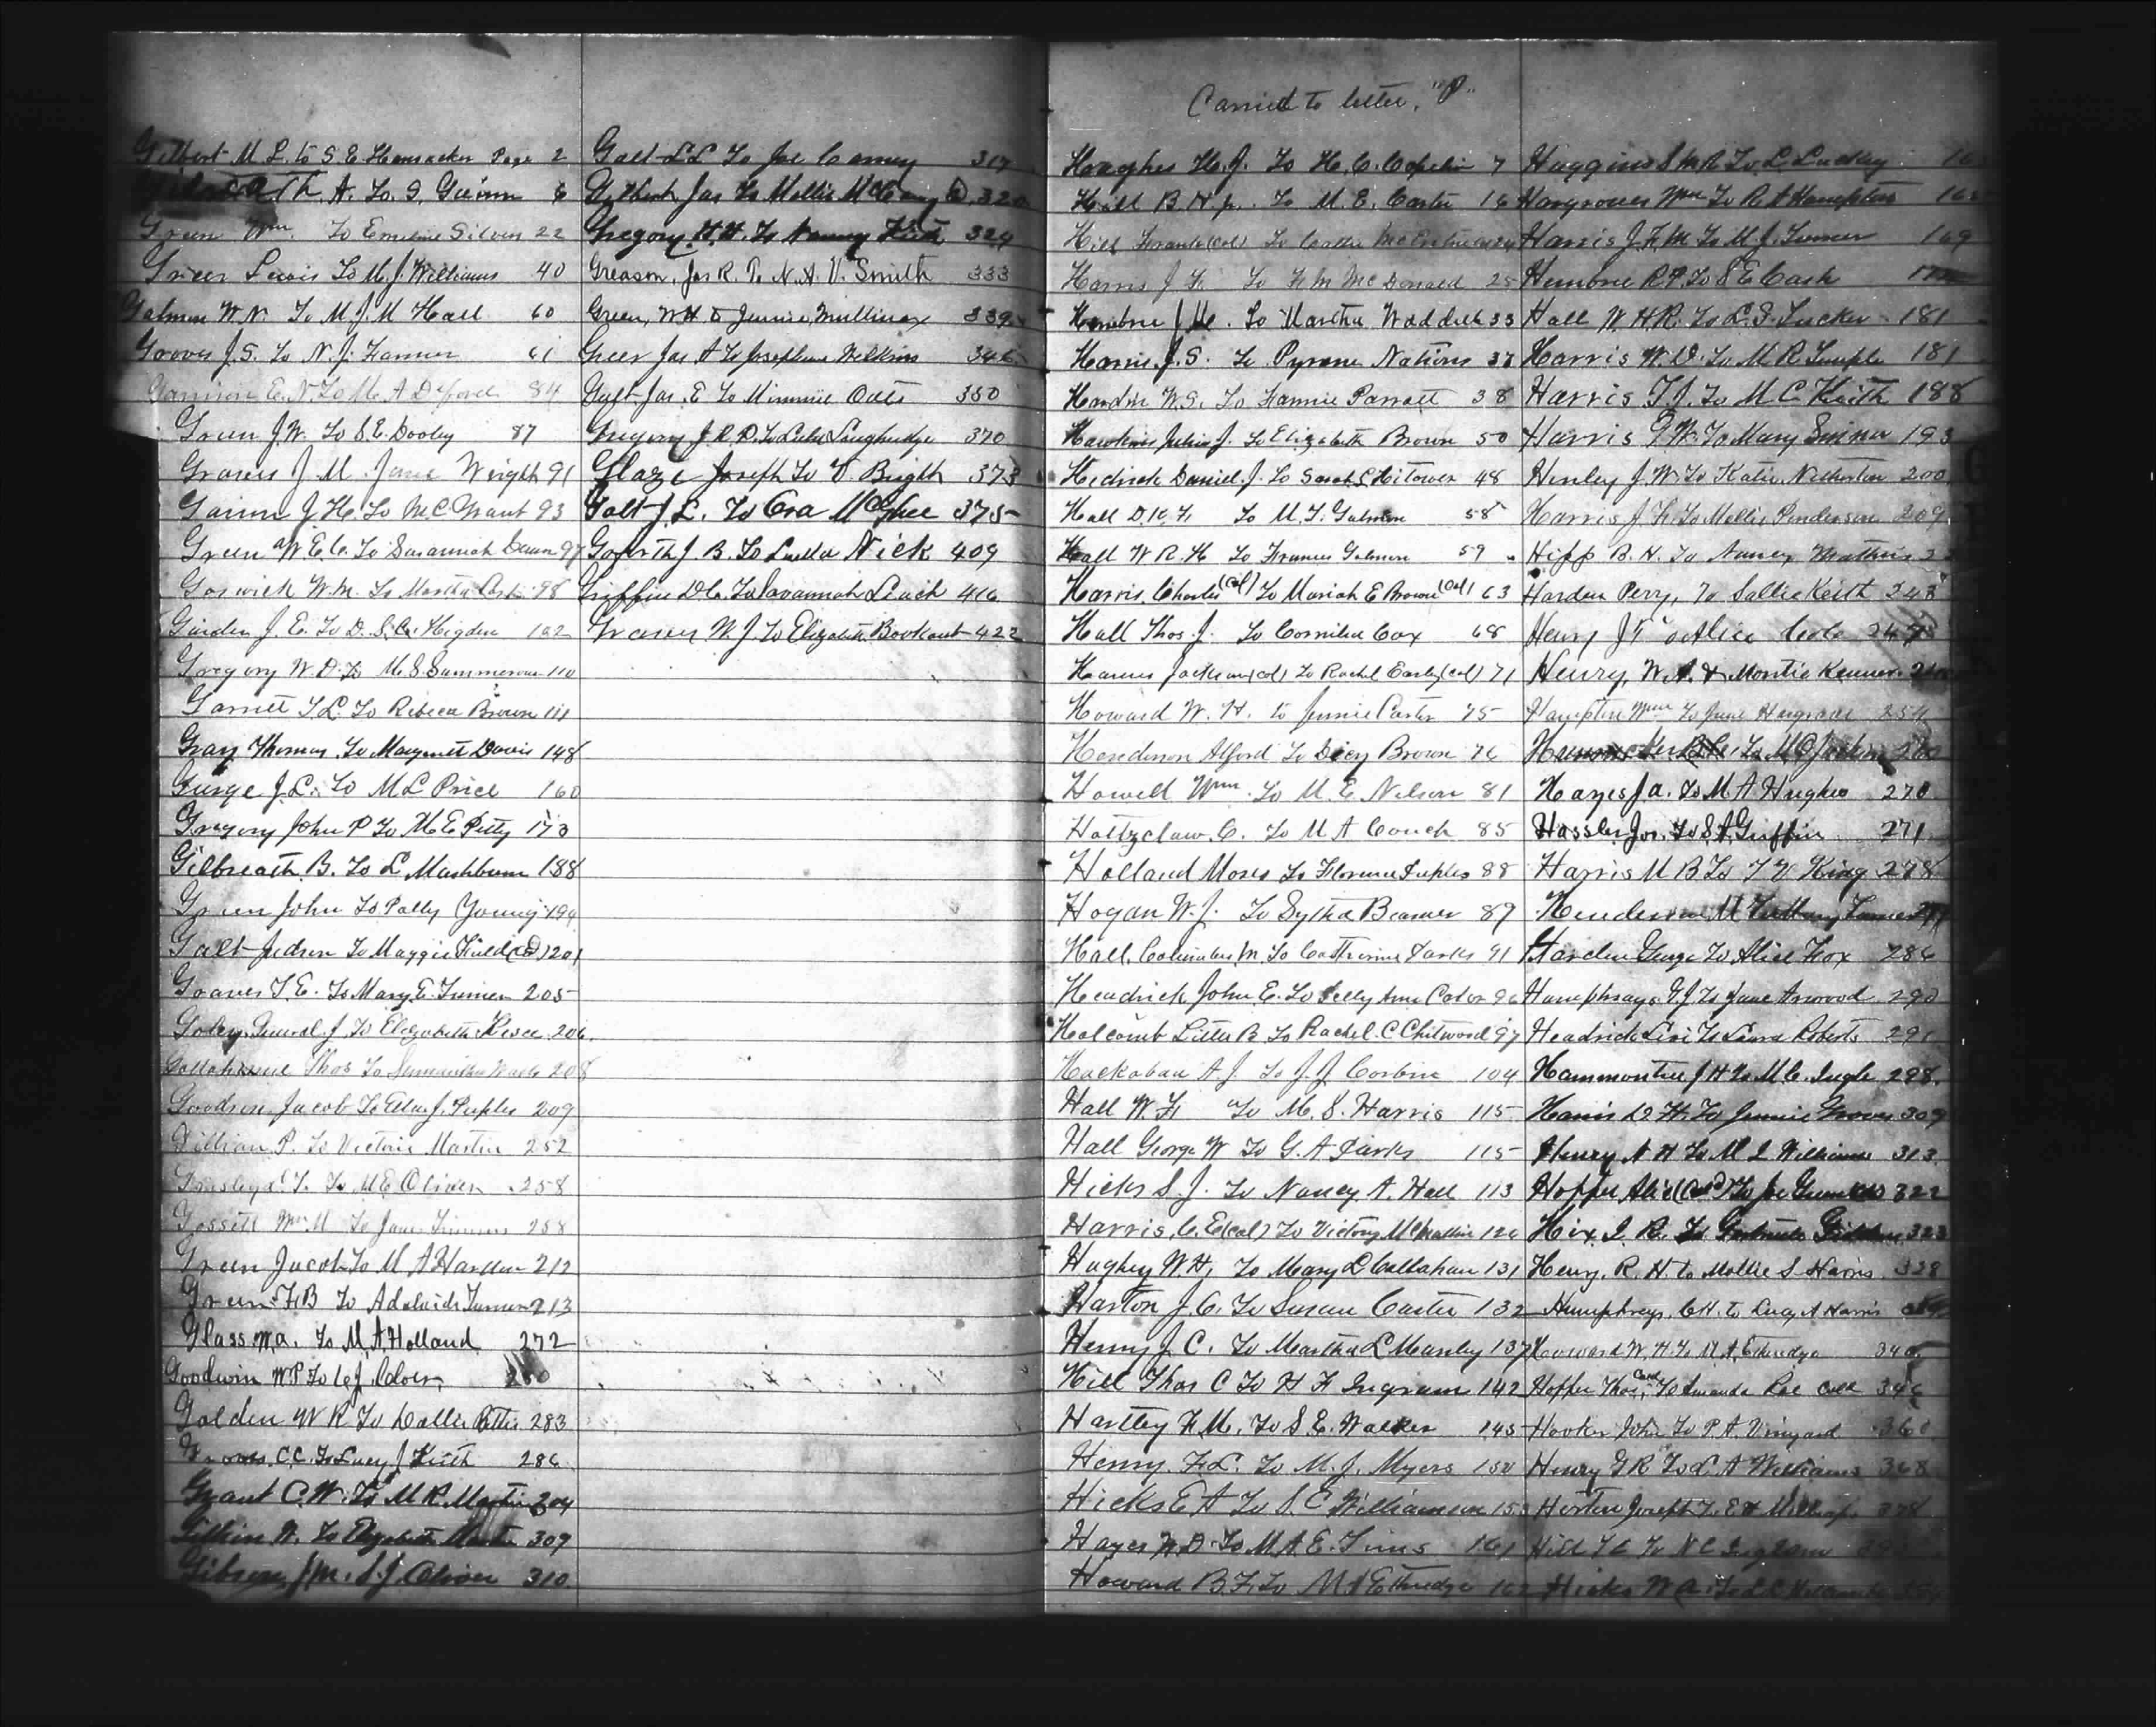 Gilbert M L. to S E Hensacker Page 2
A. To. I. Guinn 6
Green Wm. To Emeline Silvers 22
Greer Lewis To M. J. Williams 40
Galmon W. N. To M. J. M Hall 60
Groves J. S. To N. J. Farmer 61
Garrison E. N. To M. A Deford 84
Green J. W. To S. E. Dooly 87
Graves J. M. Jane Wright 91
J. H. To M. C. Grant 93
Green W. E. C. To Susannah 97
Goswick W. M. To Martha 98
J. E. To D. S. C. Higdon 102
Gregory W. D. To M. S. Summerour 110
Garrett T L. To Rebecca Brown 111
Gray Thomas To Margarett Davis 148
Gurge J. L. To M L Price 160
Gregory John P To M E Petty 173
Gilbreath B. To L Mashburn 188
Green John To Polly Young 194
Galt Judson To Maggie Field (Col) 201
Graves T. E. To Mary E. Turner 205
General J. To Elizabeth 206
Thos To 208
Goodson Jacob To Ella J. Peeples 209
Gillian P. To Victoria Martin 252
T. To M E Oliver 258
Gossett Wm M To Jane 258
Green Jacob To M A Harden 212
Green F. B To Adelaide Turner 213
Glass W. A. To M. A. Holland 272
Goodwin W P To C J.
Golden W R To 283
Groves C. C. To Lucy J Keith 286
Grant C. W. To M R. Martin 304
W. To Elizabeth 309
Gibson J M. S. J Oliver 310
Galt L L To Joe Carney 317
Gilbert Jas To Mollie 320
Gregory H. H. To Nannie Keith 324
Greason, Jas R. To N. A. V. Smith 333
Green, W H & Jennie Mullinax 339
Greer Jas A To Josephine Wilkins 346
Galt Jas. E To Minnie Oats 350
Gregory J R. P. To Lula Loughridge 370
Glaze Joseph To V. Bright 373
Galt J. L. To Cra McGhee 375
J. B. To Luella Nick 409
Griffin D C. To Savannah Leach 416
Graves W. J To Elizabeth Bookout 422
Carried to letter, "P"
Hughes H. J. To H. C. Copelin 7
Hill B H jr. To M. E. Carter 16
Hill Frank (col) To
Harris J. F. To F. M McDonald 25
Hembree J M. To Martha Waddell 33
Harris. J. S. To Pyrene Nations 37
Hardin W. S. To Fannie Parrott 38
Hawkins Julius J. To Elizabeth Brown 50
Hedrick Daniel. J. To Sarah L Hitower 48
Hall D. K. F. To M. T. Galmon 58
Hall W R. H To Frances Galmon 59
Harris, Charles (Col) To Mariah E Brown (Col) 63
Hall Thos. J. To Cornelia Cox 68
Jackson (col) To Rachel Early (col) 71
Howard W. H. to Jennie Carter 75
Henderson Alford To Dicy Brown 76
Howell Wm. To M. E. Nelson 81
Holtzclaw C. To M A Couch 85
Holland Moses To Florence Peeples 88
Hogan W. J. To Sytha Beamer 89
Hall, Columbus M. To Catherine Parks 91
Hendrick John E. To 96
Holcomb Litter B To Rachel. C. Chitwood 97
Hackobau A J. To J. J Corbin 104
Hall W. F. To M. S. Harris 115
Hall George W To G. A Parks 115
Hicks S. J. To Nancy A. Hall 113
Harris, C. E (col) To Victory
Hughey W. H. To Mary L Callahan 131
Harton J. C. To Susan Carter 132
Henry J C. To Martha L Manley 137
Hill Thos C To H F Ingram 142
Hartley F M. To S. E. Walker 145
Henry. F. L. To M. J. Myers 150
Hicks E A To S. C Williamson
Hayes W. D. To M A. E. Sims 161
Howard B. F. To M A Ethredge
Huggins S M R To L. Luckey
Hargroves Wm To R A Hampton
Harris J. F. M To M. J. Turner 169
Hembree R P. To S E Cash
Hall W. H R. To L. S. Tucker 181
Harris W. D. To M. R Temple 181
Harris T. J. To M C. Keith 188
Harris G W. To Mary 193
Henley J. W. To Katie Netherton 200
Harris J. F. To Mollie Penderson 209
Hipp B. H. To Nancy Mathis
Harden Perry, To Sallie Keith 243
Henry J T to Alice Cole
Henry, W. A. & Montie Kenner
Hampton Wm To June Hargrove 254
Hayes J. A. To M A Hughes 270
Hassler Jos. To S. A. Griffin 271
Harris M B To T V King 278
Henderson M To Mary Turner
Harden George To Alice Fox 286
Humphrays G J. To Jane Arwood 290
Headrick Levi To Laura Roberts 291
Hammontree J H To M C. Ingle 298
Harris To Jennie Groves 309
Henry N H To M L Williams 313
Hopper (Col) To Joe 322
Hix J. B. To Gertrude 323
Henry. R. H. to Mollie S Harris 328
Humphreys. C. H. to Lucy A Harris
Howard W. H. To M. A. Ethredge 340
Hopper Thos Cold To Amanda Roe Cold 346
Hooker John To P. A. Vineyard 360
Henry G R To L. A Williams 368
Horton Joseph To E H 378
Hill T C To N C Ingram
Hicks W A. To